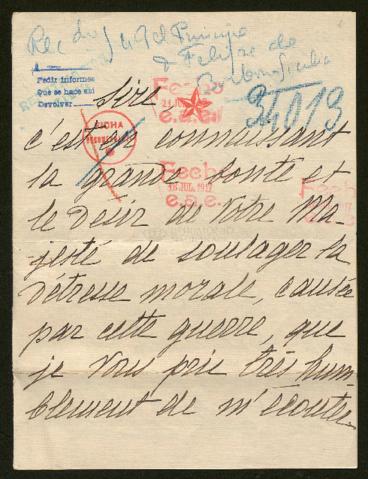 Rec de S A el Principe
Felipe de
Borbon Sicilia
Pedir informes
Que se hace así
Devolver
34013
FICHA
Fecha
Sire,
c'est en connaissant
la grande bonté et
Fecha
18 JUL. 1917
Fech
le désir de Votre Ma-
jesté de soulager la
détresse morale, causée
par cette guerre, que
je Vous prie très hum-
blement de m'écouter